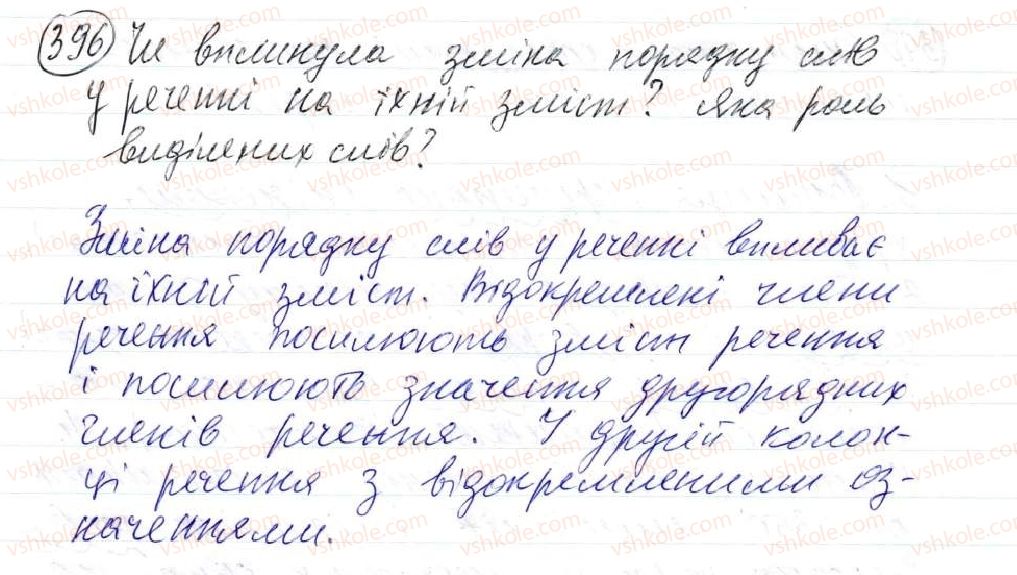 396 Чи вплинула зміна порядку слів
у реченні на їхній зміст? Яка роль
виділених слів?
Зміна порядку слів у реченні впливає
на їхній зміст. Відокремлені члени
речення посилюють зміст речення
і посилюють значення другорядних
членів речення. У другій колон-
ці речення з відокремленими оз-
наченнями.